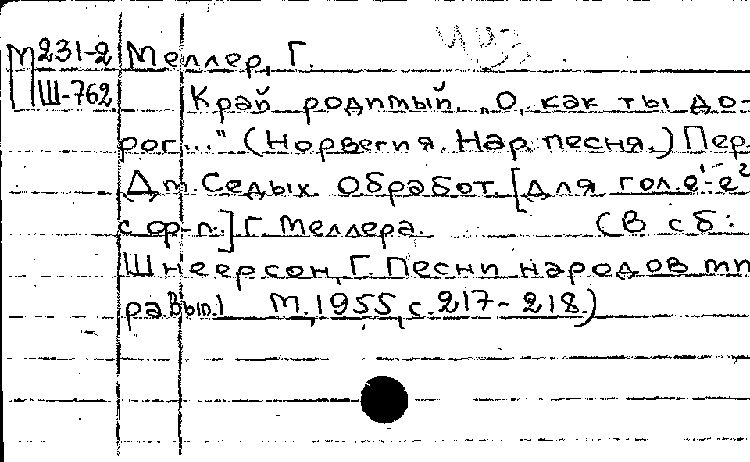 М 231-2 Меллер, Г.
Ш-762 Край родимый. „О, как ты до-
рог..." (Норвегия. Нар. песня.) Пер.
Дм. Седых. Обработ. [для гол. e¹-e²
с ор-п.] Г. Меллера. (В сб:
Шнеерсон, Г. Песни народов ми
ра Вып. 1 М., 1955, с. 217-218.)